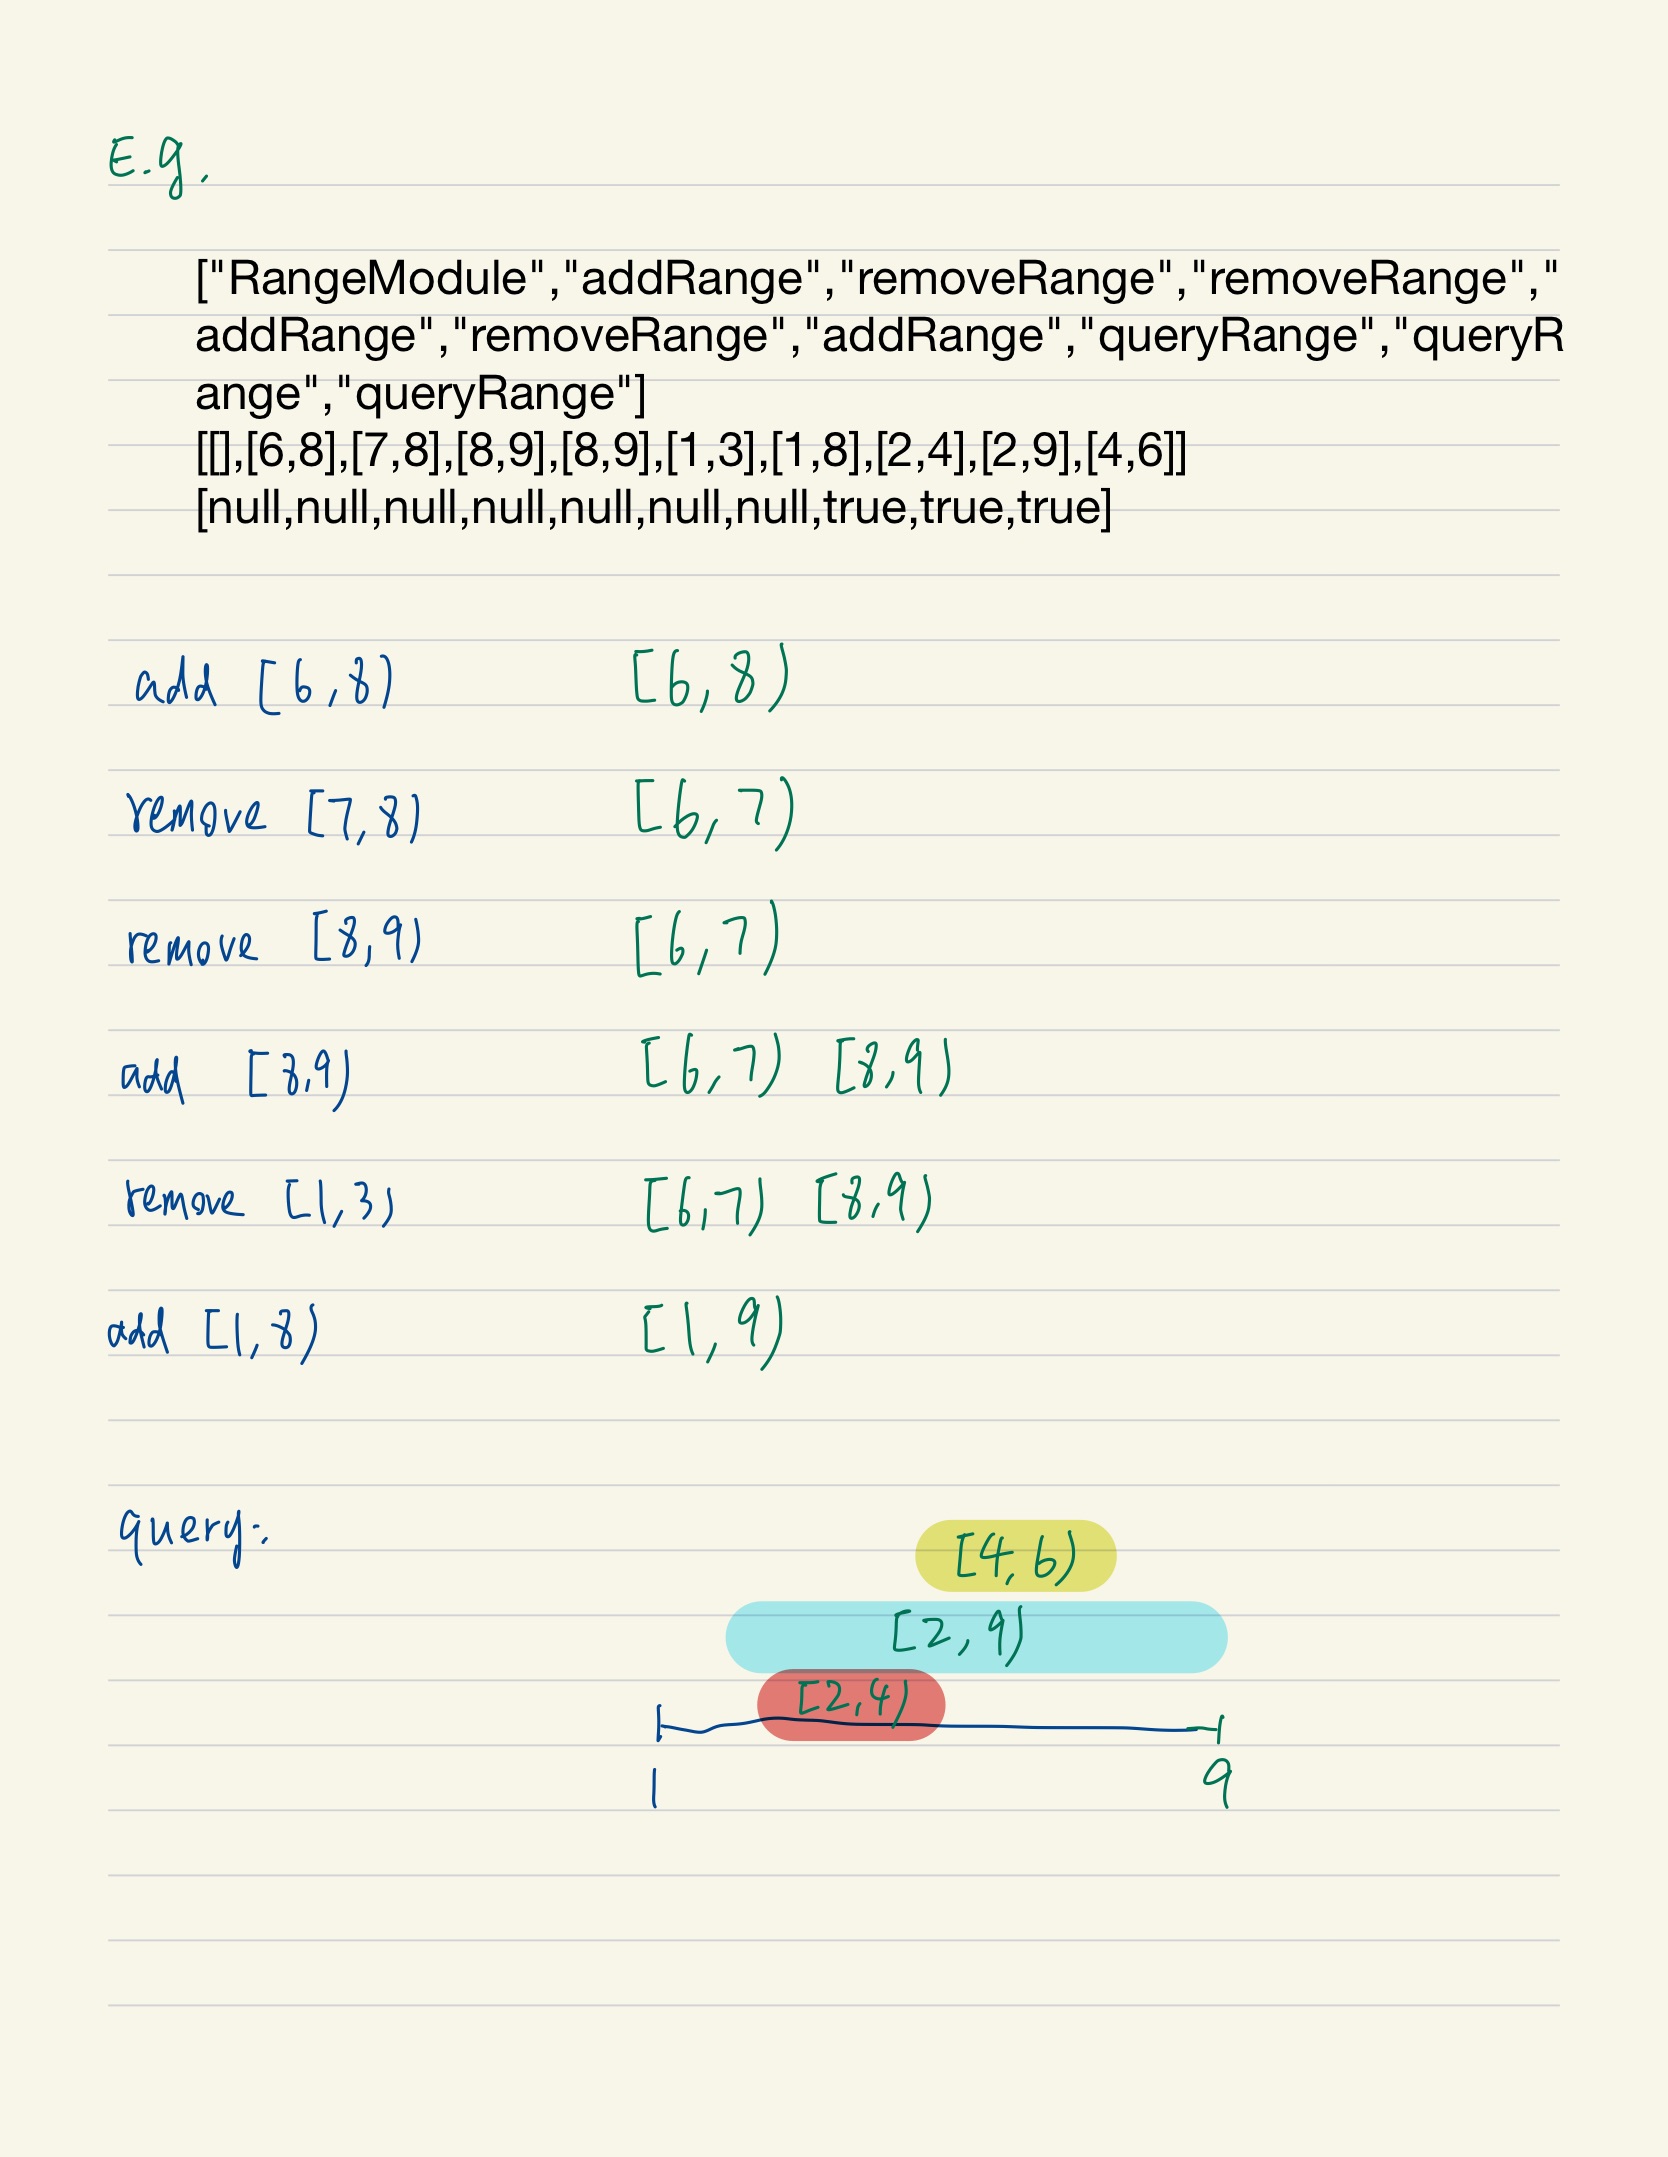 E.g.
["RangeModule","addRange","removeRange","removeRange","
addRange","removeRange","addRange","queryRange","queryR
ange","queryRange"]
[[],[6,8],[7,8],[8,9],[8,9],[1,3],[1,8],[2,4],[2,9],[4,6]]
[null,null,null,null,null,null,null,true,true,true]
add [6,8) [6,8)
remove [7,8) [6,7)
remove [8,9) [6,7)
add [8,9) [6,7) [8,9)
remove [1,3) [6,7) [8,9)
add [1,8) [1,9)
query:
[4,6)
[2,9)
[2,4)
1 9